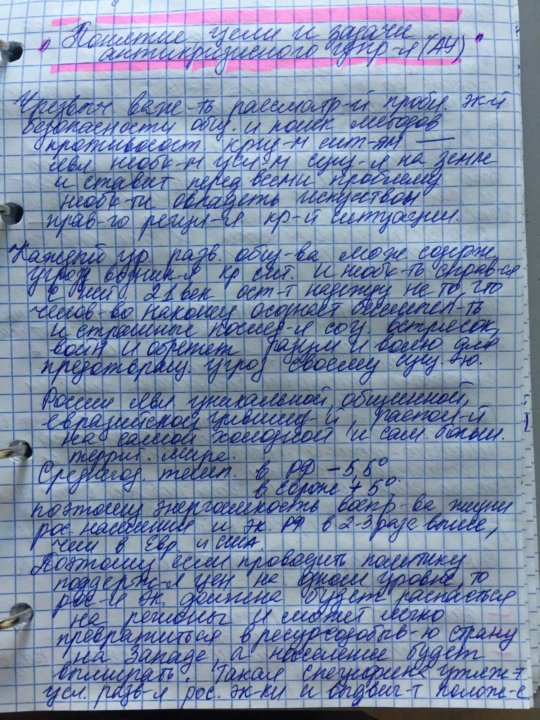 Понятие цели и задачи
антикризисного упр-я (АУ)
Чрезвыч важн-ть рассмотр-й пробл. эк-й
безопасности общ. и поиск методов
противодост криз-м сит-ям —
явл необх-м усл-м сущ-я на земле
и ставит перед всеми проблему
необх-ти овладеть искусством
прав-го решен-я кр-й ситуации.
Каждый ур. разв. общ-ва може содерж.
угрозу возник-я кр сит. и необх-ть справ-я
с ней. 21 век ост-т надежду на то, что
челов-во наконец осознает
и страшные послед-я соц встрясок,
войн и обретет разум и волю для
предотвращ. угроз своему сущ-ю.
Россия явл уникальной, общинной,
евразийской цивилиз-й, распол-й
на самой холодной и сам. больш.
террит. мира.
Среднегод. темп. в РФ -5,5°
в Европе +5°
поэтому энергоемкость воспр-ва жизни
рос. населения и эк. РФ в 2-3 раза выше,
чем в Евр и США.
Поэтому если проводить политику
поддерж-я цен на одном уровне, то
рос-я эк. должна будет распасться
на регионы и может легко
превратиться в ресурсодобыв-ю страну
на Западе, а население будет
вымирать. Такая специфика утяж-т
усл. разв-я рос. эк-ки и выдвиг-т полож-е